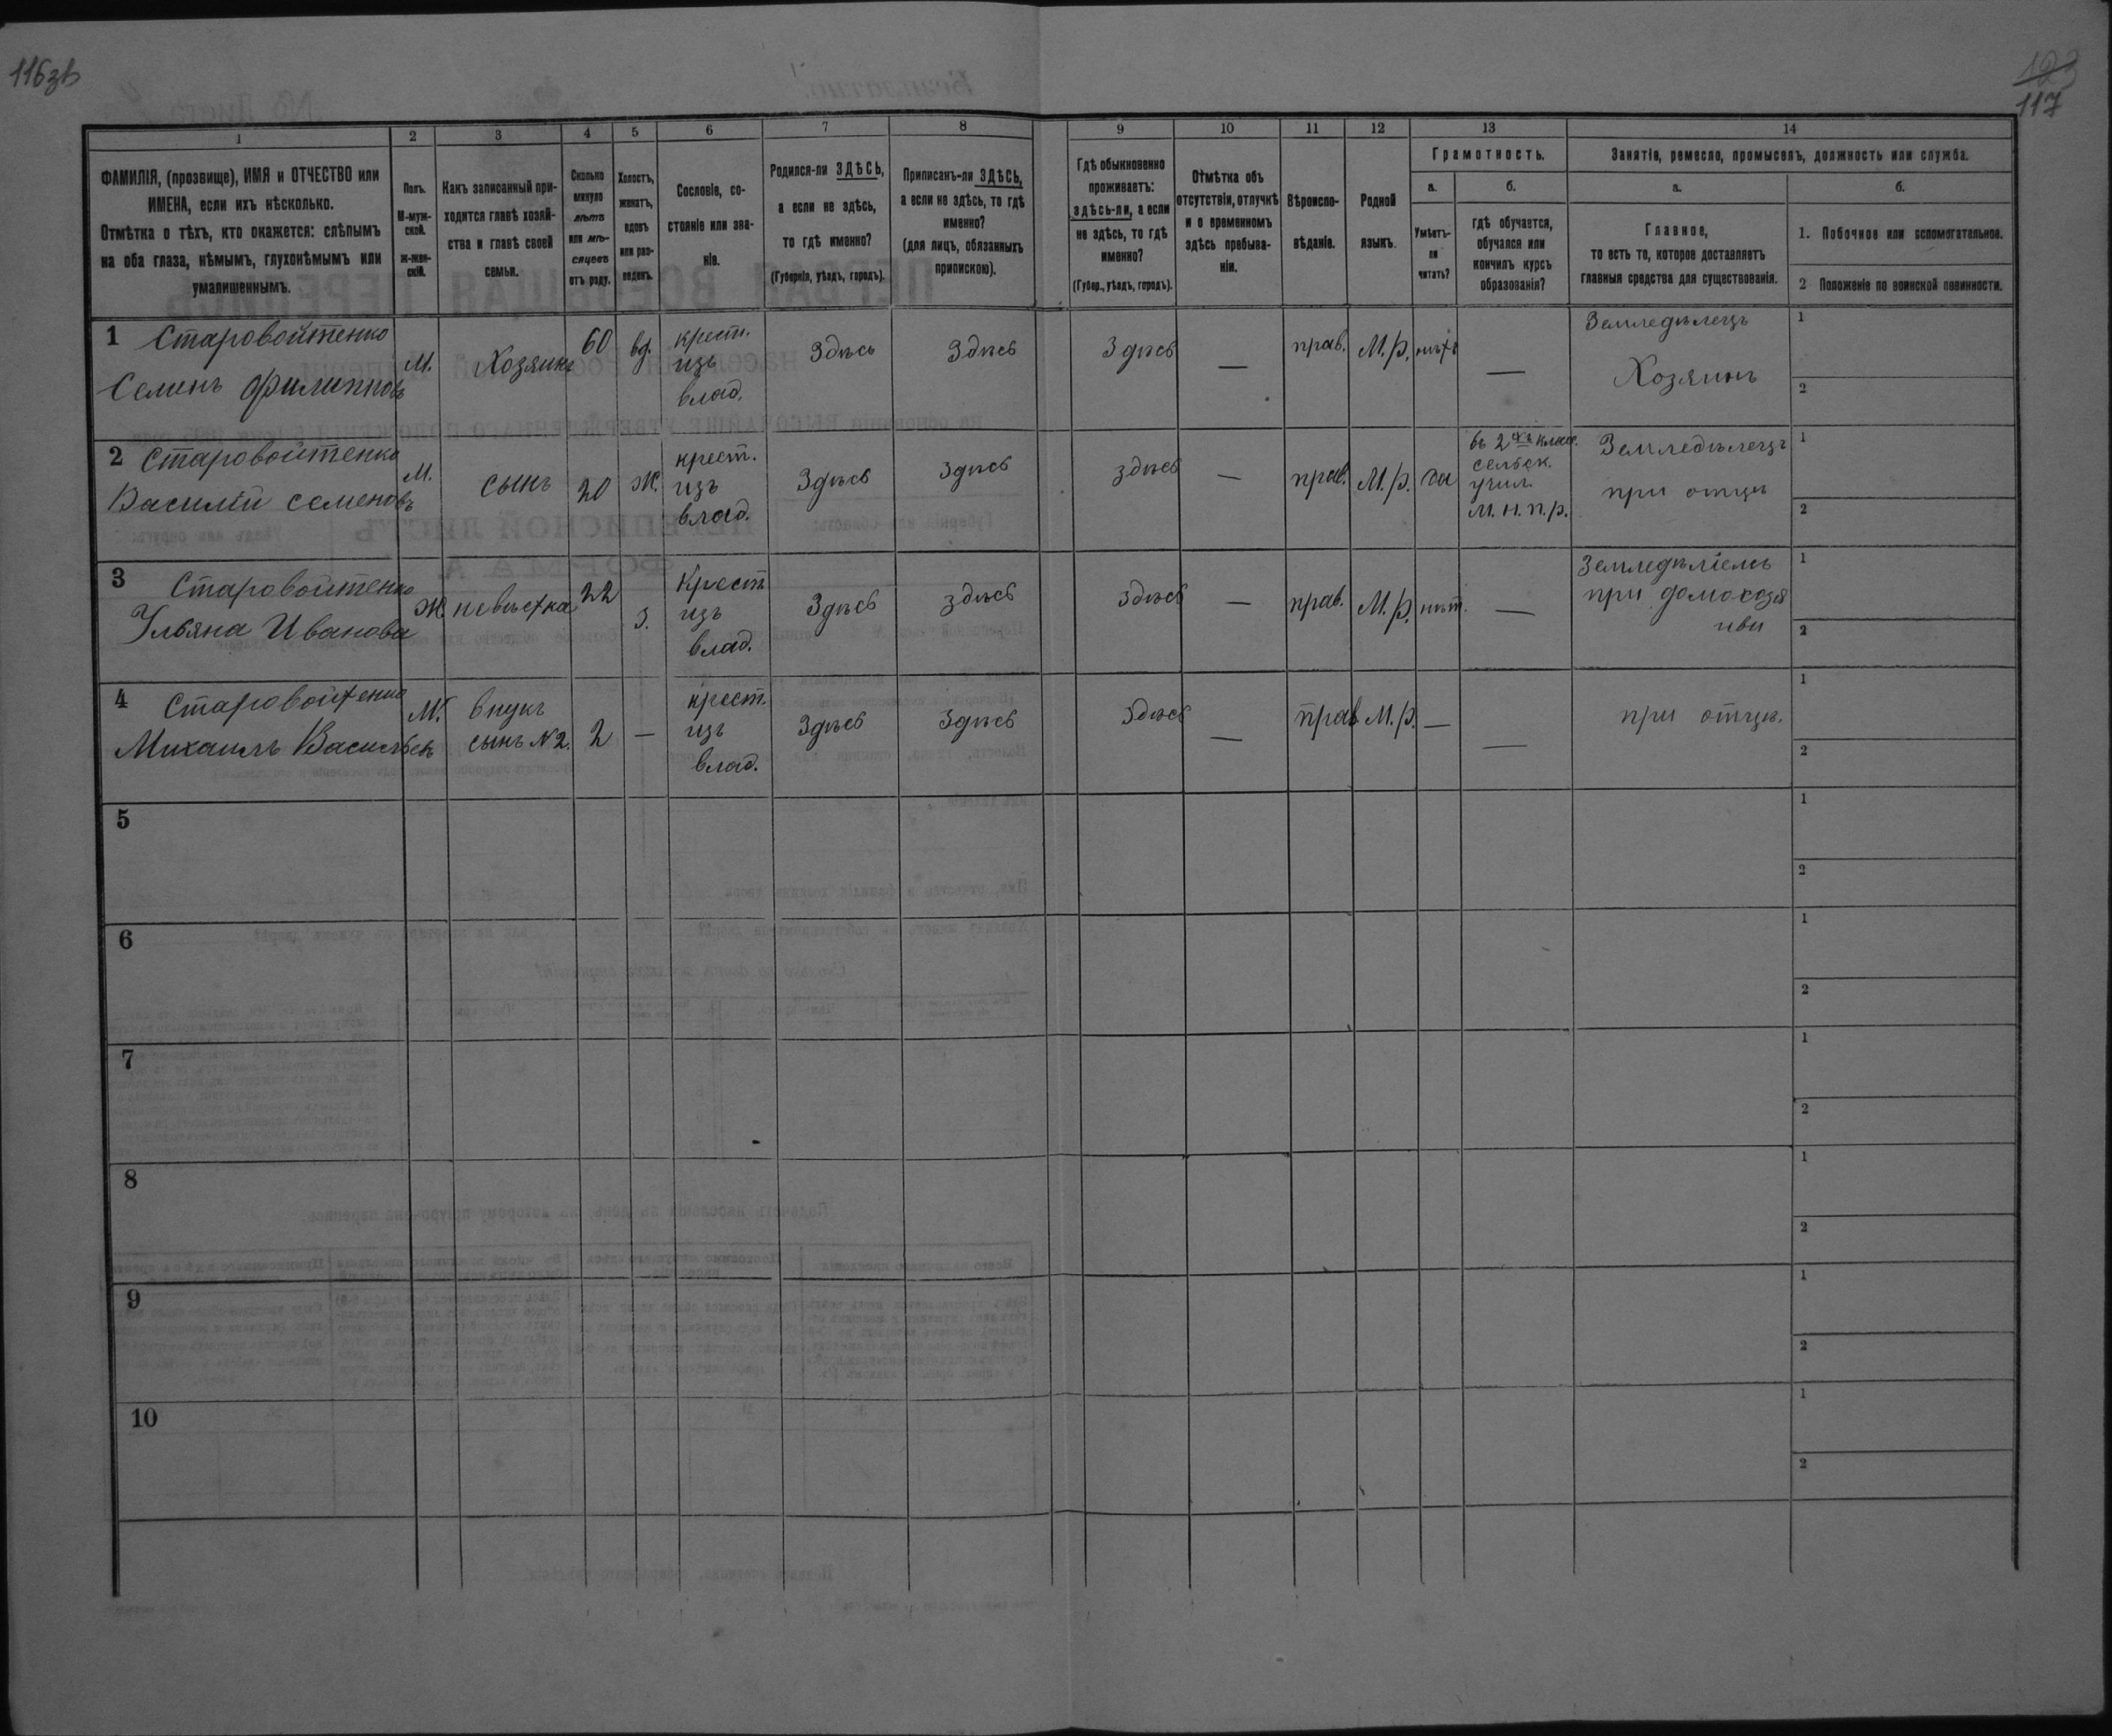 116зв
123
117
1
2
3
4
5
6
7
8
9
10
11
12
13
14
ФАМИЛІЯ, (прозвище), ИМЯ и ОТЧЕСТВО или
ИМЕНА, если ихъ нѣсколько.
Отмѣтка о тѣхъ, кто окажется: слѣпымъ
на оба глаза, нѣмымъ, глухонѣмымъ или
умалишеннымъ.
Полъ.
М-муж-
ской.
ж-жен-
скій.
Какъ записанный при-
ходится главѣ хозяй-
ства и главѣ своей
семьи.
Сколько
минуло
лѣтъ
или мѣ-
сяцевъ
отъ роду.
Холостъ,
женатъ,
вдовъ
или раз-
веденъ.
Сословіе, со-
стояніе или зва-
ніе.
Родился-ли ЗДѢСЬ,
а если не здѣсь,
то гдѣ именно?
(Губернія, уѣздъ, городъ).
Приписанъ-ли ЗДѢСЬ,
а если не здѣсь, то гдѣ
именно?
(для лицъ, обязанныхъ
припискою).
Гдѣ обыкновенно
проживаетъ:
здѣсь-ли, а если
не здѣсь, то гдѣ
именно?
(Губер., уѣздъ, городъ).
Отмѣтка объ
отсутствіи, отлучкѣ
и о временномъ
здѣсь пребыва-
ніи.
Вѣроиспо-
вѣданіе.
Родной
языкъ.
Грамотность.
а.
б.
Умѣетъ-
ли
читать?
гдѣ обучается,
обучался или
кончилъ курсъ
образованія?
Занятіе, ремесло, промыселъ, должность или служба.
а.
б.
Главное,
то есть то, которое доставляетъ
главныя средства для существованія.
1. Побочное или вспомогательное.
2 Положеніе по воинской повинности.
1 Старовойтенко
Семенъ Филипповъ
М.
Хозяинъ
60
вд.
крест.
изъ
влад.
Здѣсь
Здѣсь
Здѣсь
—
прав.
М.р.
нѣтъ
—
Земледѣлецъ
Хозяинъ
1
2
2 Старовойтенко
Василій семеновъ
М.
сынъ
20
Ж.
крест.
изъ
влад.
Здѣсь
Здѣсь
здѣсь
—
прав.
М.р.
да
въ 2хъ класс.
сельск.
учил.
М.Н.п.р.
Земледѣлецъ
при отцѣ
1
2
3 Старовойтенко
Ульяна Иванова
Ж
невѣстка
22
з.
Крест
изъ
влад.
Здѣсь
здѣсь
Здѣсь
—
прав.
М.р.
нѣт.
—
при домохозя
1
2
4 Старовойтенко
Михаилъ Васильевъ
М.
внукъ
сынъ №2.
2
—
крест.
изъ
влад.
Здѣсь
Здѣсь
Здѣсь
—
прав
М.р.
—
—
при отцѣ.
1
2
5
1
2
6
1
2
7
1
2
8
1
2
9
1
2
10
1
2